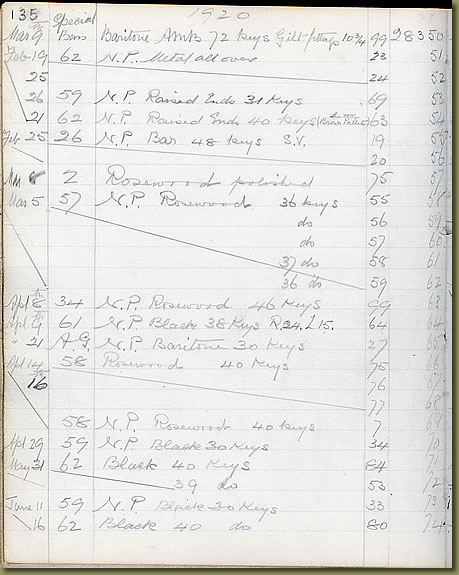 135 1920
Mar 9th Special Bass Baritone Amb 72 Keys Gilt fittings 10¾ 99 28350
Feb 19 62 N.P. Metal all over 23 51
25 24 52
26 59 N.P. Raised Ends 31 Keys 69 53
21 62 N.P. Raised Ends 40 Keys 63 54
Feb 25 26 N.P. Bar 48 Keys S.V. 19 55
20 56
Mar 8 2 Rosewood polished 75 57
Mar 5 57 N.P. Rosewood 36 Keys 55 58
do 56 59
do 57 60
37 do 58 61
36 do 59 62
Apl 8th 34 N.P. Rosewood 46 Keys 99 63
Apl 9 61 N.P. Black 38 Keys R24.L15. 64 64
" 21 A.G. N.P. Baritone 30 Keys 27 65
Apl 14 58 Rosewood 40 Keys 75 66
16th 76 67
77 68
58 N.P. Rosewood 40 Keys 7 69
Apl 29 59 N.P. Black 30 Keys 34 70
May 31 62 Black 40 Keys 84 71
39 do 53 72
June 11 59 N.P. Black 30 Keys 33 73
16 62 Black 40 do 80 74